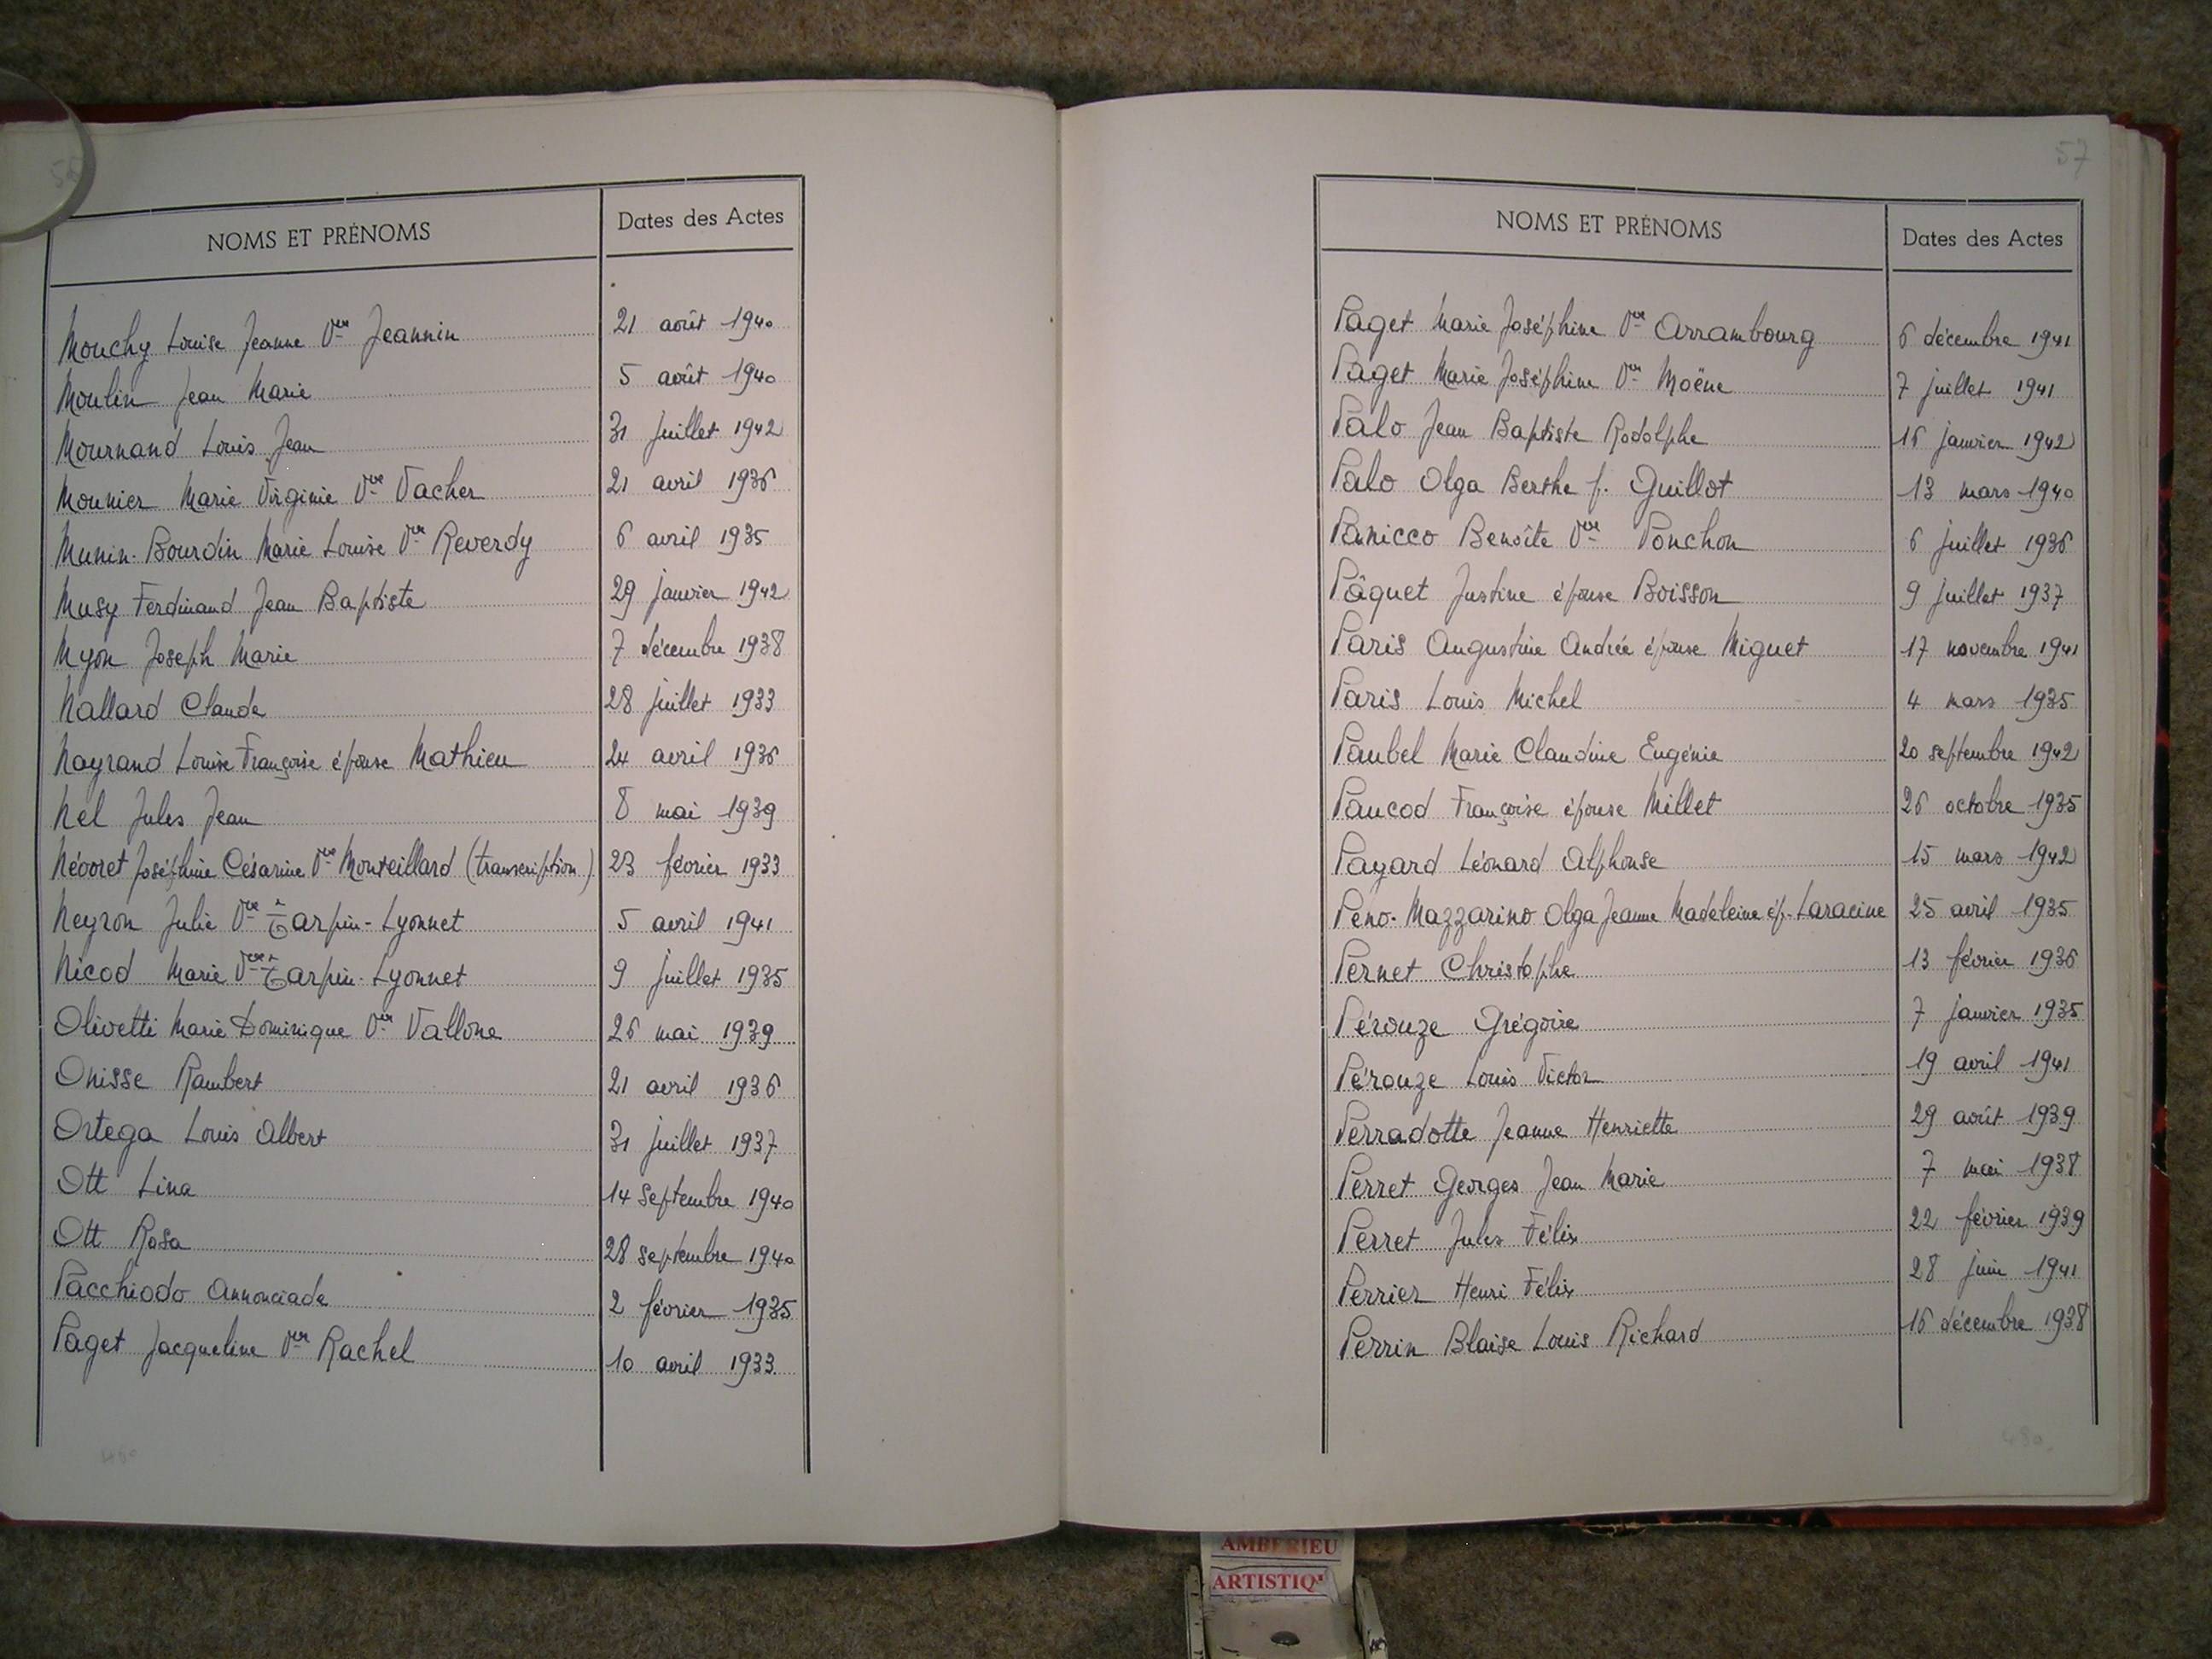 56
NOMS ET PRÉNOMS Dates des Actes
Mouchy Louise Jeanne Vve Jeannin 21 août 1940
Moulin Jean Marie 5 août 1940
Mournand Louis Jean 31 juillet 1942
Mounier Marie Virginie Vve Vacher 21 avril 1936
Munin-Bourdin Marie Louise Vve Reverdy 6 avril 1935
Musy Ferdinand Jean Baptiste 29 janvier 1942
Myon Joseph Marie 7 décembre 1938
Nallard Claude 28 juillet 1933
Nayrand Louise Françoise épouse Mathieu 24 avril 1936
Nel Jules Jean 8 mai 1939
Névoret Joséphine Césarine Vve Monteillard (transcription) 23 février 1933
Neyron Julie Vve Tarpin-Lyonnet 5 avril 1941
Nicod Marie Vve Tarpin-Lyonnet 9 juillet 1935
Olivetti Marie Dominique Vve Vallone 26 mai 1939
Onisse Rambert 21 avril 1936
Ortega Louis Albert 31 juillet 1937
Ott Lina 14 septembre 1940
Ott Rosa 28 septembre 1940
Pacchiodo Annonciade 2 février 1935
Paget Jacqueline Vve Rachel 10 avril 1933
57
NOMS ET PRÉNOMS Dates des Actes
Paget Marie Joséphine Vve Arrambourg 6 décembre 1941
Paget Marie Joséphine Vve Moëne 7 juillet 1941
Palo Jean Baptiste Rodolphe 16 janvier 1942
Palo Olga Berthe f. Guillot 13 mars 1940
Panicco Benoîte Vve Ponchon 6 juillet 1936
Pâquet Justine épouse Boisson 9 juillet 1937
Paris Augustine Andrée épouse Miguet 17 novembre 1941
Paris Louis Michel 4 mars 1935
Paubel Marie Claudine Eugénie 20 septembre 1942
Paucod Françoise épouse Millet 26 octobre 1935
Payard Léonard Alphonse 15 mars 1942
Peno-Mazzarino Olga Jeanne Madeleine ép. Laracine 25 avril 1935
Pernet Christophe 13 février 1936
Pérouze Grégoire 7 janvier 1935
Pérouze Louis Victor 19 avril 1941
Perradotte Jeanne Henriette 29 août 1939
Perret Georges Jean Marie 7 mai 1938
Perret Jules Félix 22 février 1939
Perrier Henri Félix 28 juin 1941
Perrin Blaise Louis Richard 16 décembre 1938
AMBERIEU
ARTISTIQ